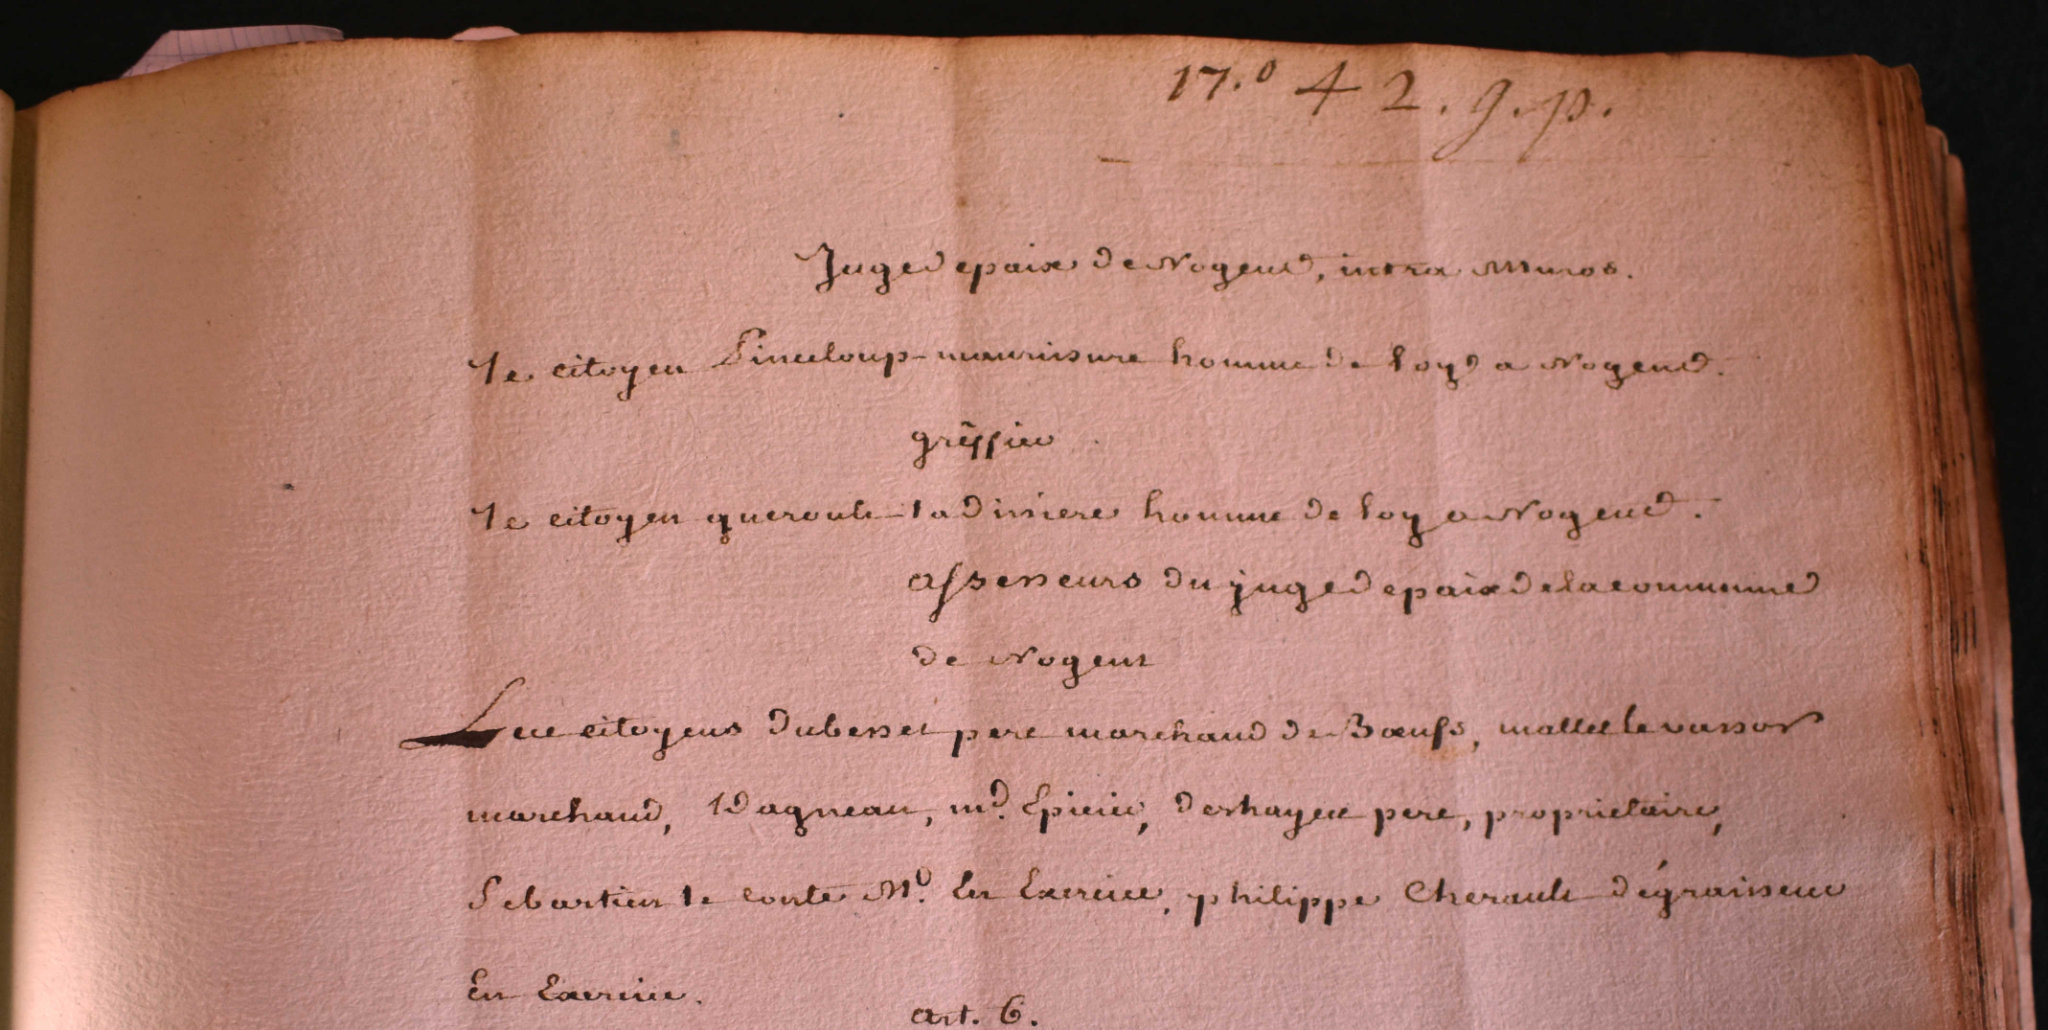 17.° 42. g. p.
Juge de paix de Nogent, intra Muros.
le citoyen Pinceloup-maurissure homme de loy a Nogent.
greffier
le citoyen queroult-ladiniere homme de loy a Nogent.
assesseurs du juge de paix de la commune
de Nogent
Les citoyens dubesset pere marchand de Bœufs, mallet levassor
marchand, Dagneau, md. Epicier, deshayes pere, proprietaire,
Sebastien le conte Md. En Exercice, philippe Cherault dégraisseur
En Exercice.
art. 6.